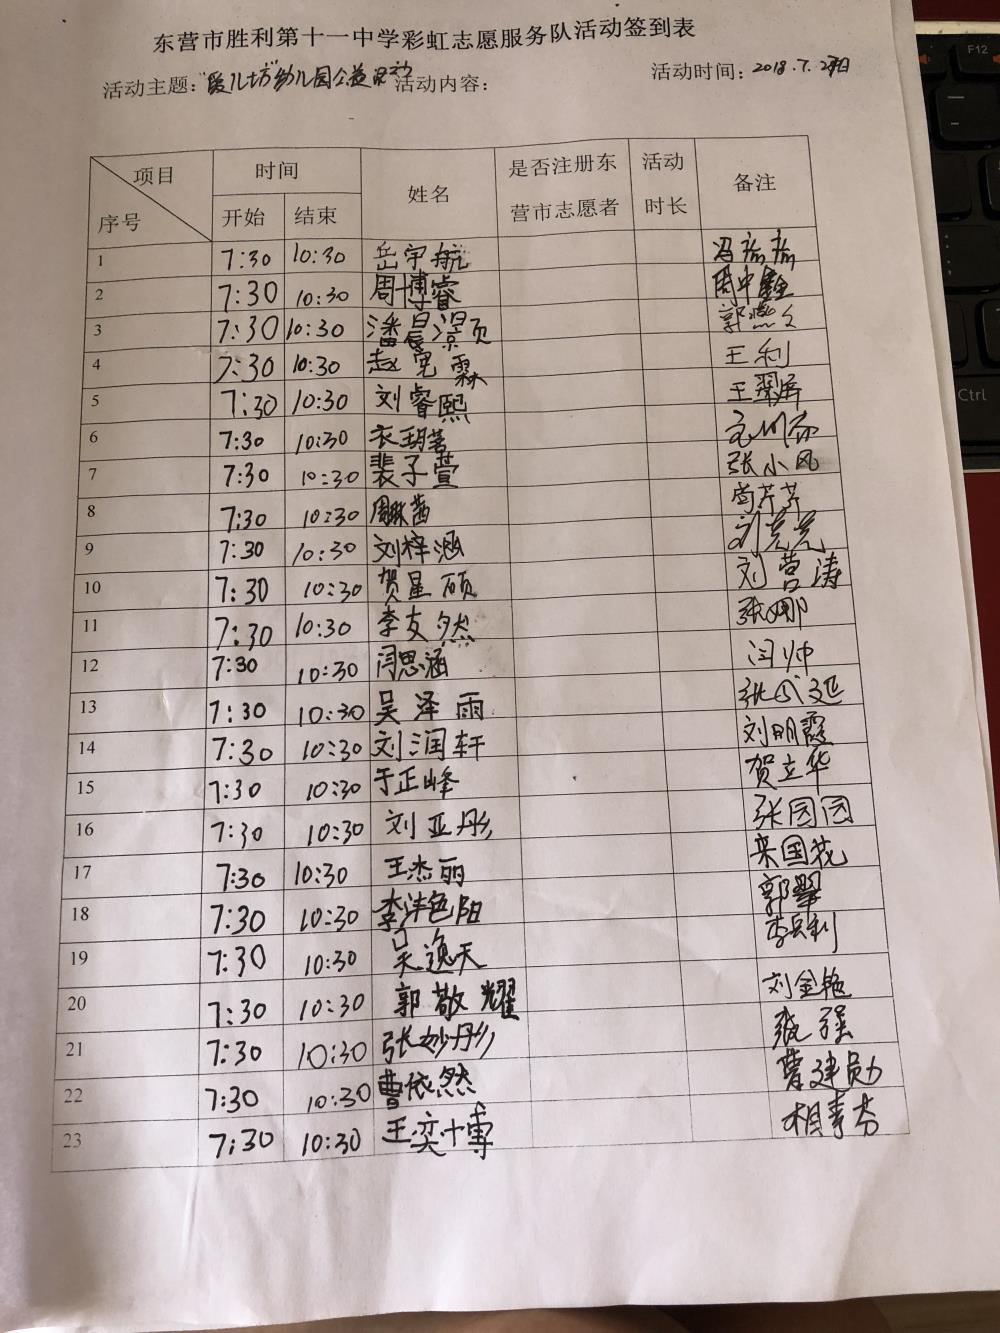 东营市胜利第十一中学彩虹志愿服务队活动签到表
活动主题：“爱儿坊”幼儿园公益活动 活动内容： 活动时间：2018.7.
项目 序号 时间 姓名 是否注册东营市志愿者 活动时长 备注
开始 结束
1 7:30 10:30 岳宇航 冯
2 7:30 10:30 周博睿 周中
3 7:30 10:30 潘晨 郭
4 7:30 10:30 赵宪霖 王利
5 7:30 10:30 刘睿熙 王翠屏
6 7:30 10:30 衣玥茗
7 7:30 10:30 裴子萱 张小风
8 7:30 10:30 周 茜 尚芹芹
9 7:30 10:30 刘梓涵 刘亮亮
10 7:30 10:30 贺星硕 刘营涛
11 7:30 10:30 李友然 张娜
12 7:30 10:30 闫思涵 闫帅
13 7:30 10:30 吴泽雨 张
14 7:30 10:30 刘润轩 刘明霞
15 7:30 10:30 于正峰 贺立华
16 7:30 10:30 刘亚彤 张园园
17 7:30 10:30 王杰丽 栾国花
18 7:30 10:30 李沣 阳 郭翠
19 7:30 10:30 吴逸天 李兵利
20 7:30 10:30 郭敬耀 刘金艳
21 7:30 10:30 张妙彤 张强
22 7:30 10:30 曹依然 曹建勋
23 7:30 10:30 王奕博 相青芬
F12
Ctrl